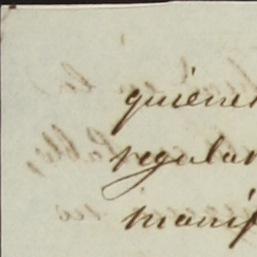 quiénes
regular
manif